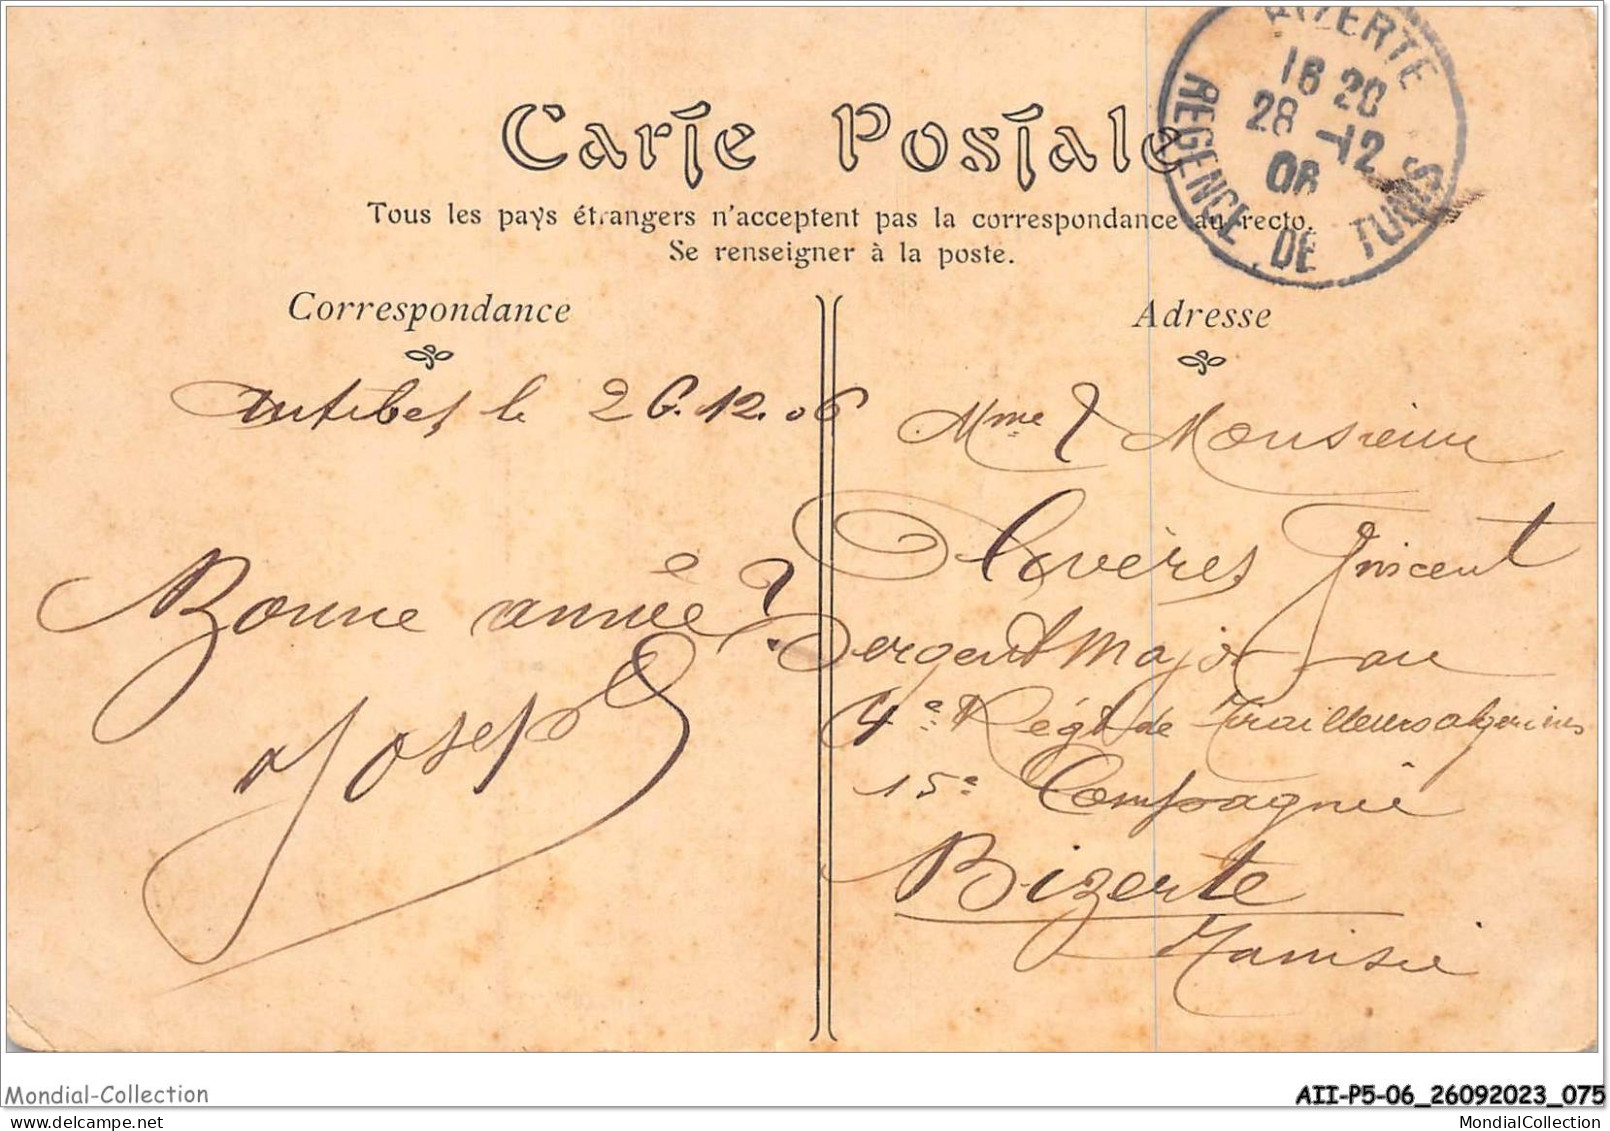 BIZERTE
16 20
28 -12
06
REGENCE DE TUNIS
Carte Postale
Tous les pays étrangers n'acceptent pas la correspondance au recto.
Se renseigner à la poste.
Correspondance
Antibes, le 26.12.06
Bonne année
Joseph
Adresse
Mme & Monsieur
Olivères Vincent
Sergent Major au
4e Régt de Tirailleurs algériens
15e Compagnie
Bizerte
Tunisie
Mondial-Collection
AII-P5-06_26092023_075
MondialCollection